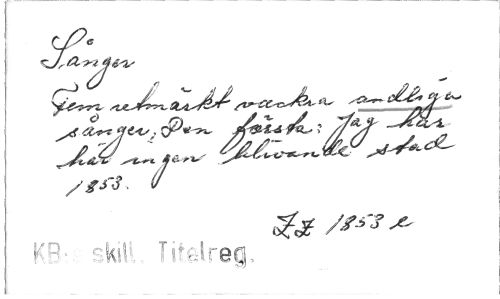 Sånger
Fem utmärkt vackra andliga
sånger; Den första: Jag har
här ingen blivande stad
1853.
ZZ 1853 e
KB:s skill. Titelreg.